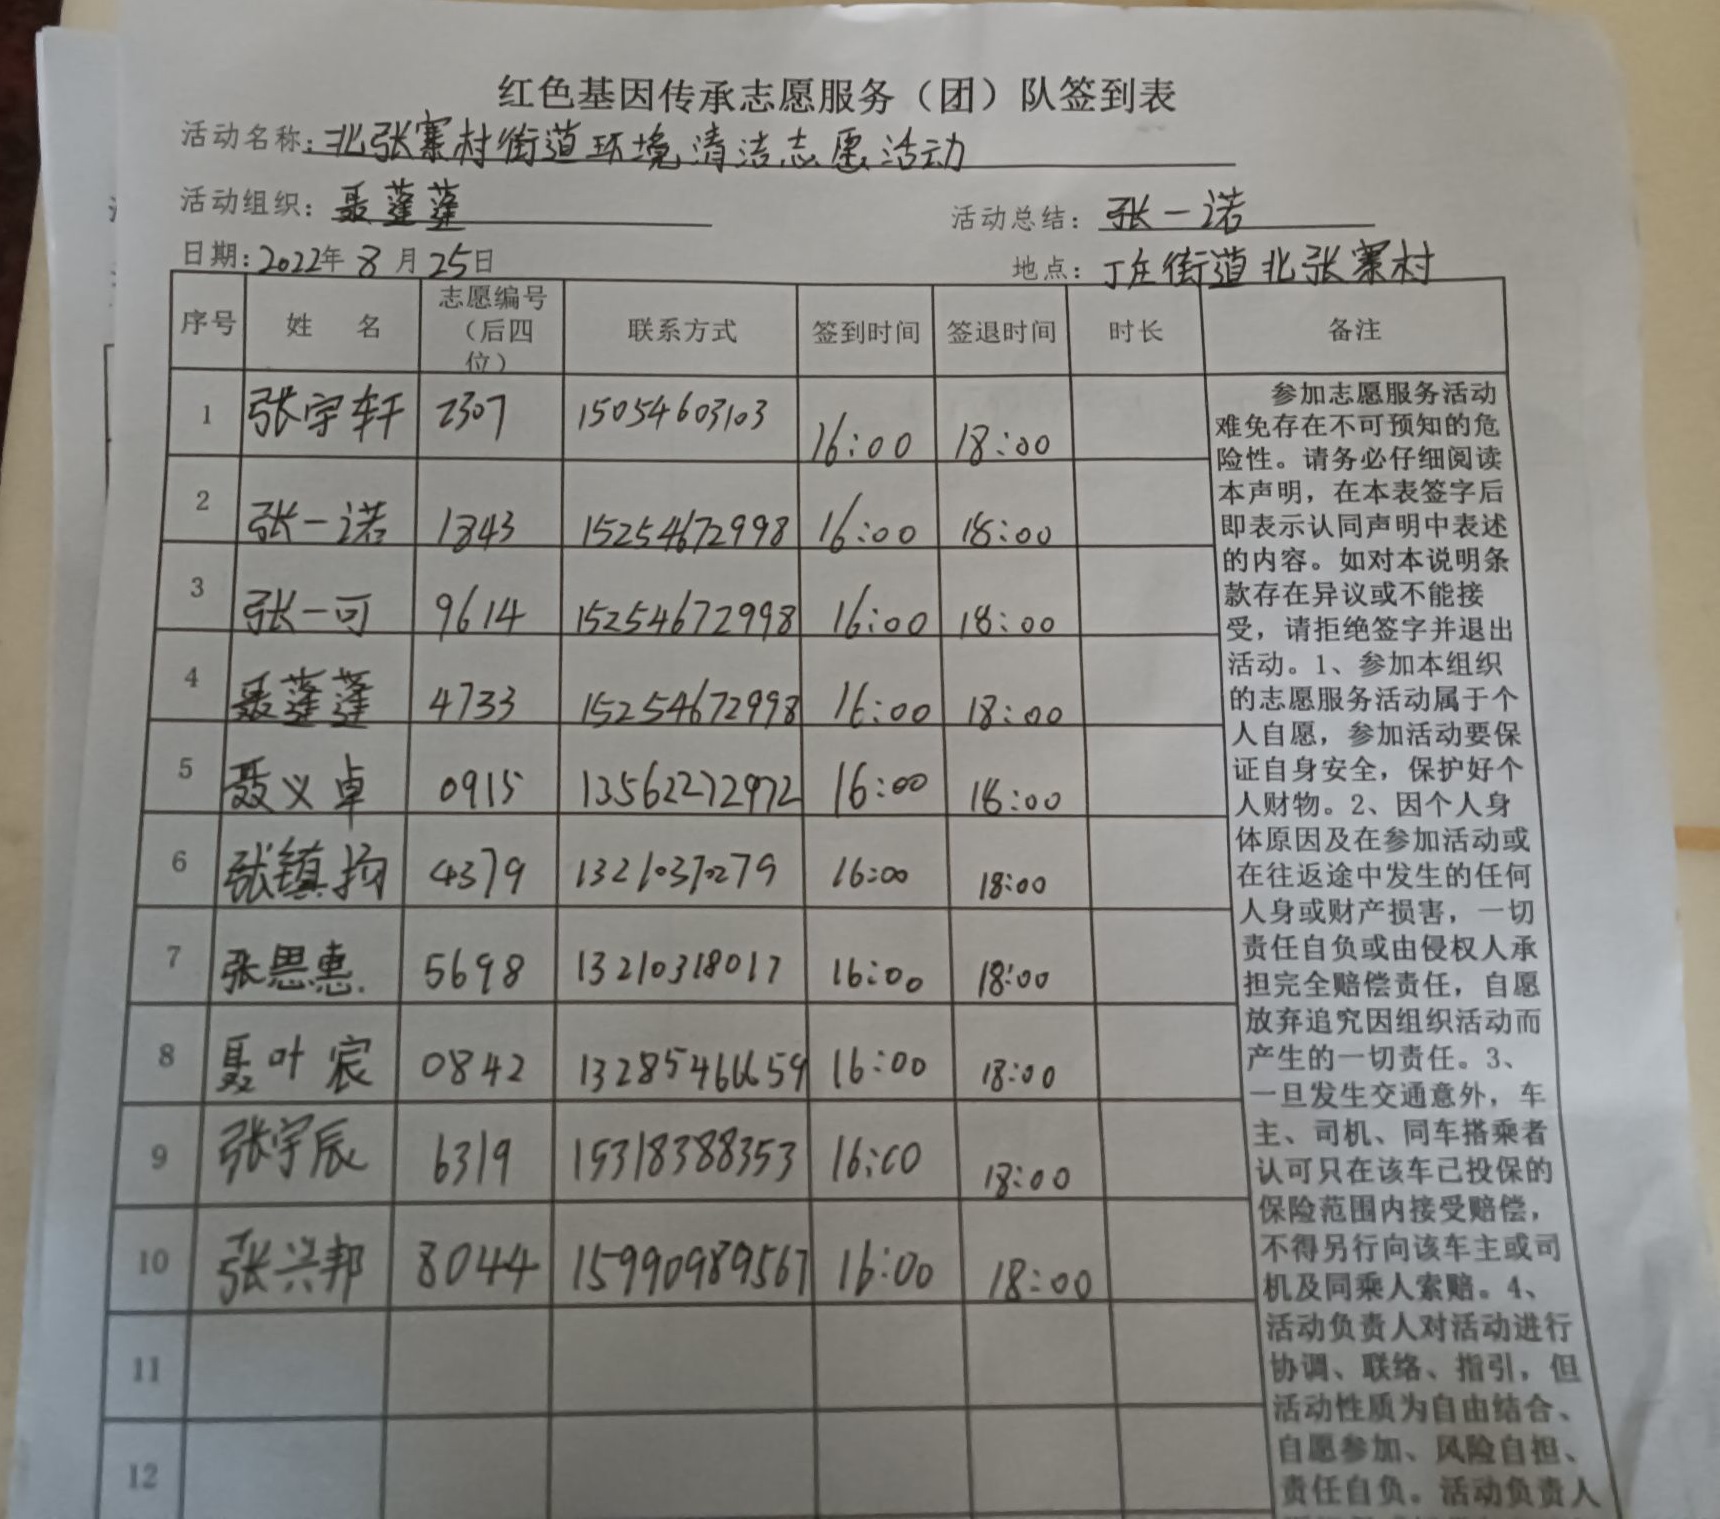 红色基因传承志愿服务（团）队签到表
活动名称：北张寨村街道环境清洁志愿活动
活动组织：聂蓬蓬 活动总结：张一诺
日期：2022年8月25日 地点：丁庄街道北张寨村
序号 姓 名 志愿编号（后四位） 联系方式 签到时间 签退时间 时长 备注
1 张宇轩 2307 15054603103 16:00 18:00
2 张一诺 1843 15254672998 16:00 18:00
3 张一可 9614 15254672998 16:00 18:00
4 聂蓬蓬 4733 15254672998 16:00 18:00
5 聂义卓 0915 13562272972 16:00 18:00
6 张镇 4379 13210370279 16:00 18:00
7 张思惠 5698 13210318017 16:00 18:00
8 聂叶宸 0842 13285466659 16:00 18:00
9 张宇辰 6319 15318388353 16:00 18:00
10 张兴邦 8044 15990989567 16:00 18:00
11
12
参加志愿服务活动
难免存在不可预知的危
险性。请务必仔细阅读
本声明，在本表签字后
即表示认同声明中表述
的内容。如对本说明条
款存在异议或不能接
受，请拒绝签字并退出
活动。1、参加本组织
的志愿服务活动属于个
人自愿，参加活动要保
证自身安全，保护好个
人财物。2、因个人身
体原因及在参加活动或
在往返途中发生的任何
人身或财产损害，一切
责任自负或由侵权人承
担完全赔偿责任，自愿
放弃追究因组织活动而
产生的一切责任。3、
一旦发生交通意外，车
主、司机、同车搭乘者
认可只在该车已投保的
保险范围内接受赔偿，
不得另行向该车主或司
机及同乘人索赔。4、
活动负责人对活动进行
协调、联络、指引，但
活动性质为自由结合、
自愿参加、风险自担、
责任自负。活动负责人